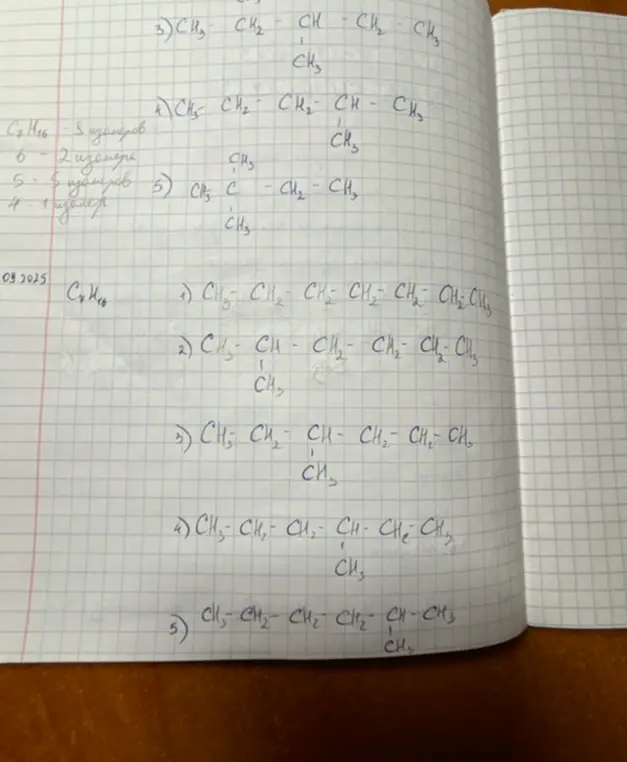 3) CH3 - CH2 - CH - CH2 - CH3
CH3
4) CH3 - CH2 - CH2 - CH - CH3
CH3
C7H16 - 5 изомеров
6 - 2 изомера
5 - 5 изомеров
4 - 1 изомер
CH3
5) CH3 C - CH2 - CH3
CH3
09.2025
C7H16
1) CH3 - CH2 - CH2 - CH2 - CH2 - CH2 - CH3
2) CH3 - CH - CH2 - CH2 - CH2 - CH3
CH3
3) CH3 - CH2 - CH - CH2 - CH2 - CH3
CH3
4) CH3 - CH2 - CH2 - CH - CH2 - CH3
CH3
5) CH3 - CH2 - CH2 - CH2 - CH - CH3
CH3